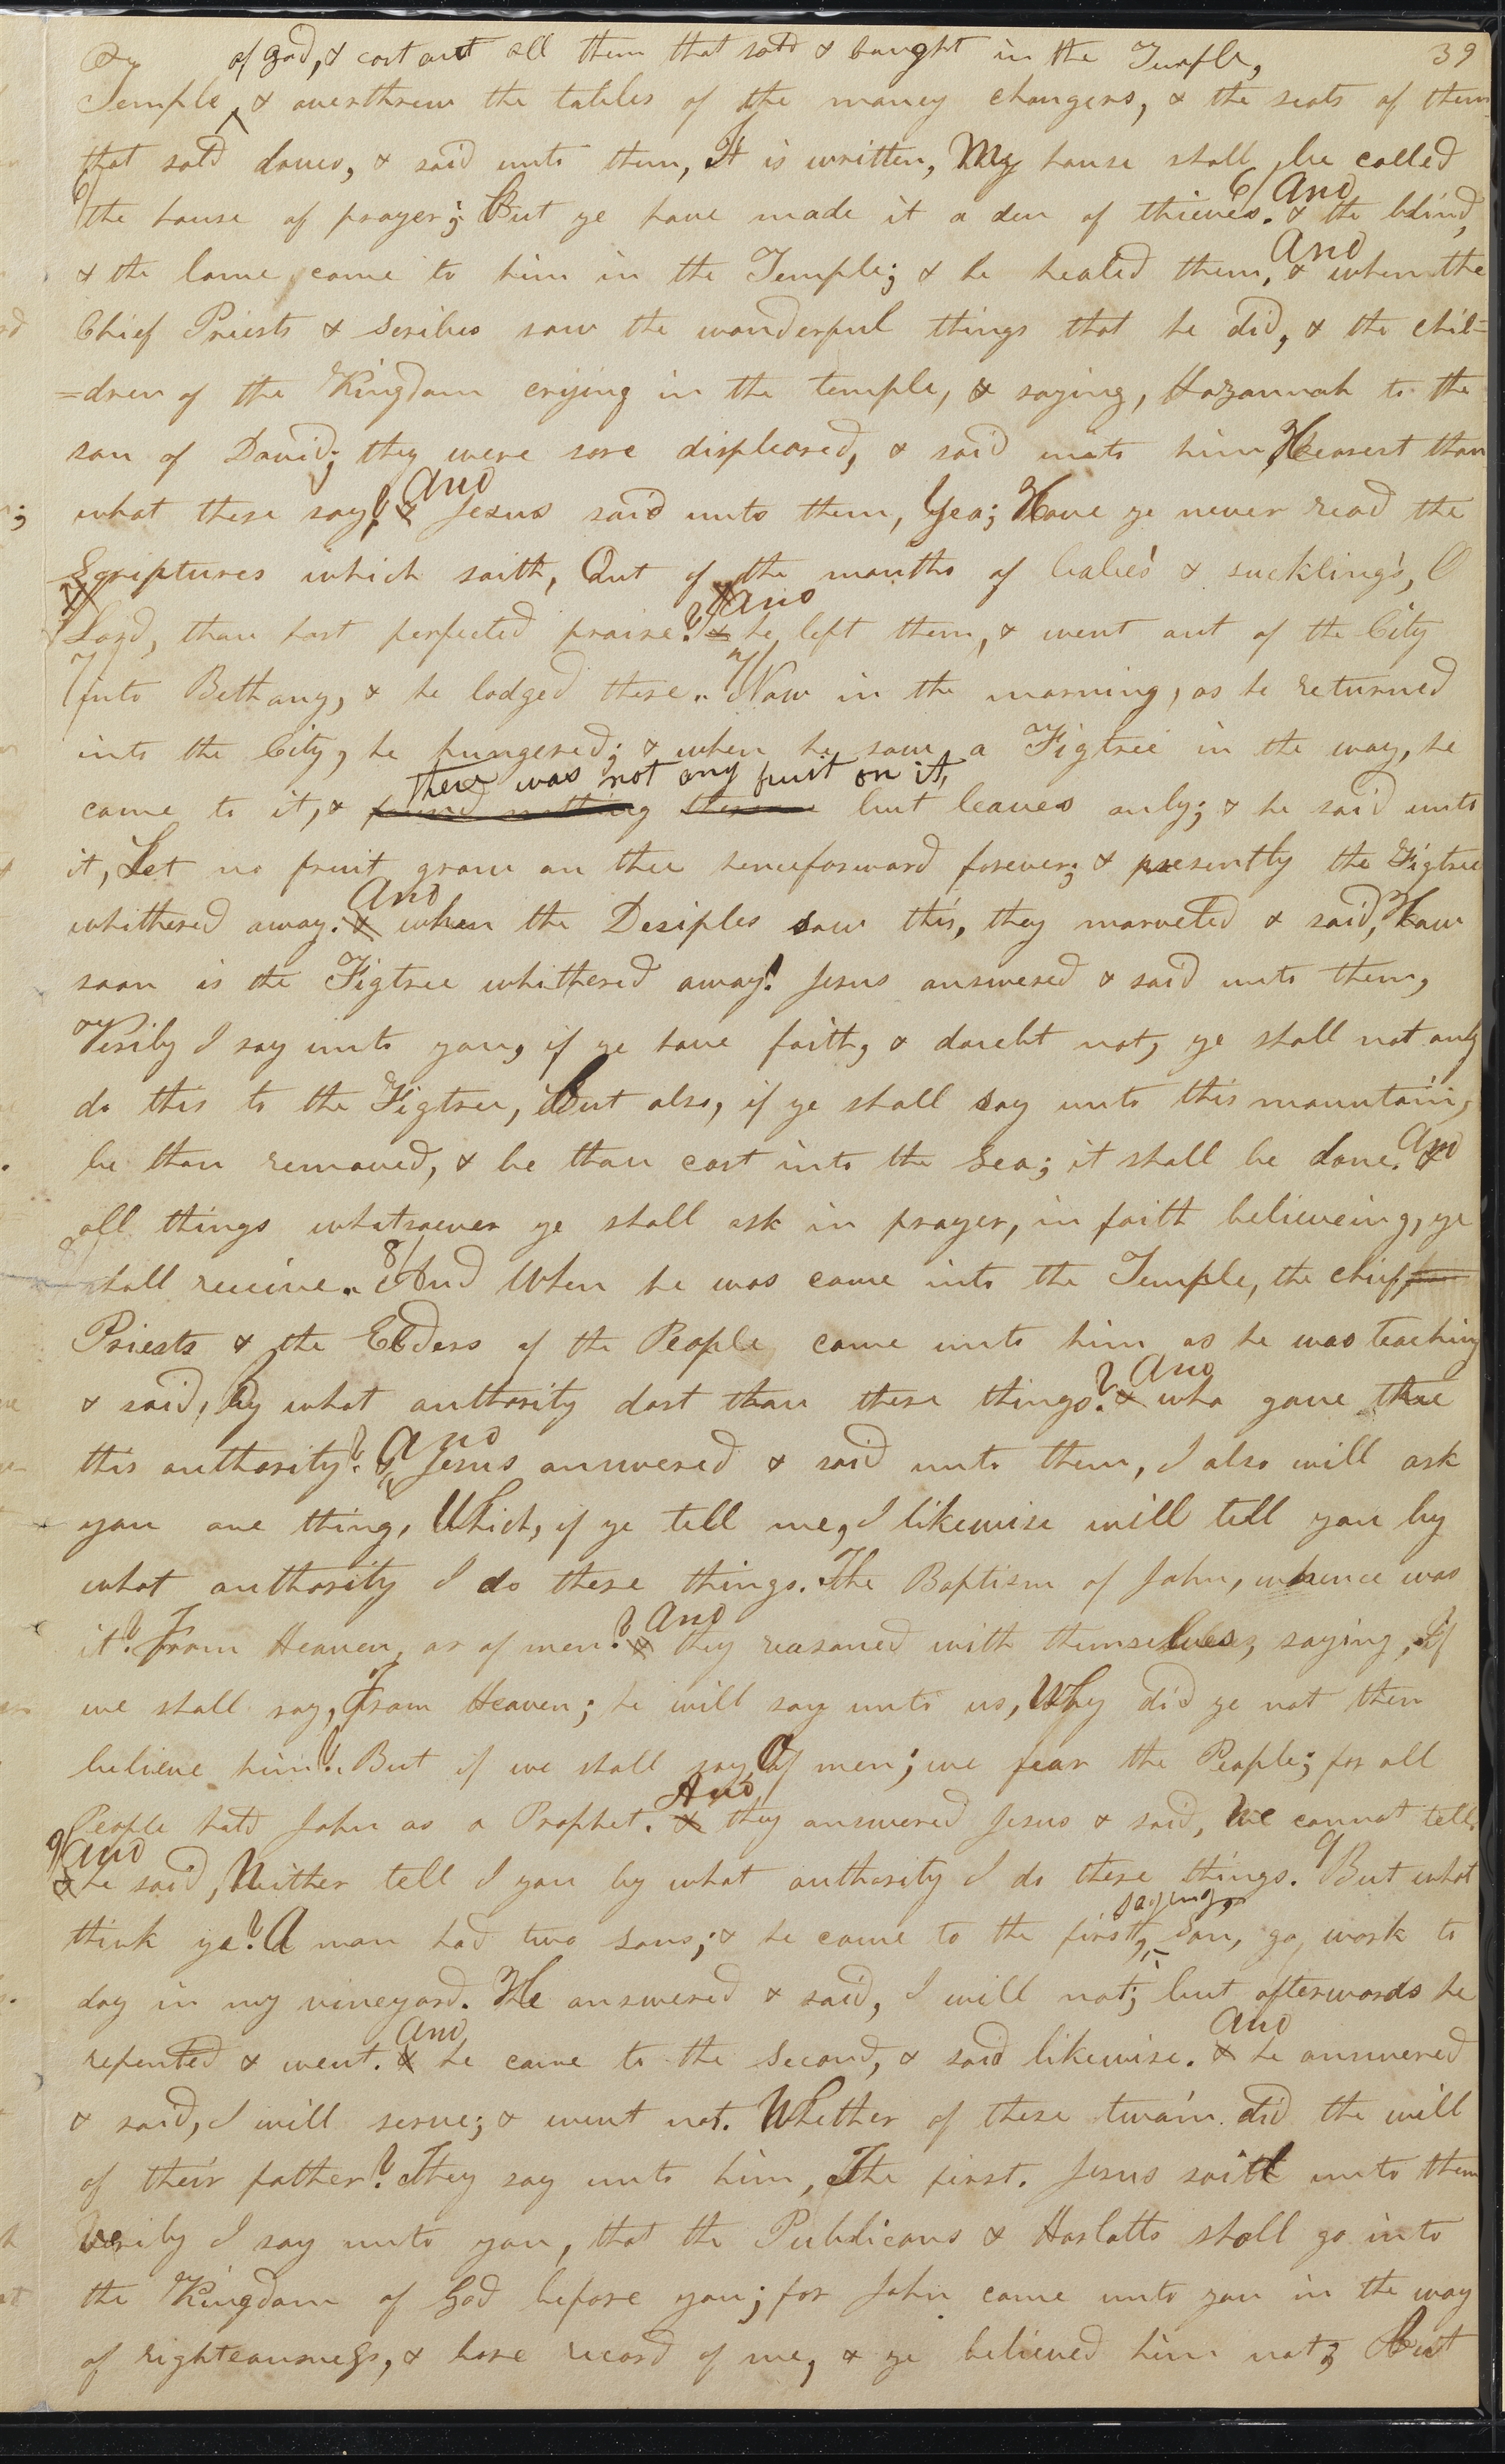 39
of god, & cast out all them that sold & baught in the Temple,
Temple & overthrew the tables of the money changers, & the seats of them
that sold doves, & said unto them, It is written, My house shall be called
6/ the house of prayer; But ye have made it a den of thieves. 6/ And & the blind,
& the lame, came to him in the Temple; & he healed them, And & when the
Chief Priests & Scribes saw the wonderful things that he did, & the chil=
=dren of the Kingdom criying in the temple, & saying, Hozannah to the
son of David; they were sore displeased, & said unto him, Hearest thou
what these say? And & Jesus said unto them, Yea; Have ye never read the
Scriptures which saith, Out of the mouths of babe's & suckling's, O
Lord, thou hast perfected praise? And & he left them, & went out of the City
7/ into Bethany, & he lodged there. 7/ Now in the morning, as he returned
into the City, he hungered; & when he saw a Figtree in the way, he
there was not any fruit on it,
came to it, & found nothing thereon but leaves only; & he said unto
it, Let no fruit grow on thee henceforward forever; & presently the Figtree
whithered away. And & when the Desiples saw this, they marveled & said, How
soon is the Figtree whithered away! Jesus answered & said unto them,
Verily I say unto you, if ye have faith, & doubt not, ye shall not only
do this to the Figtree, But also, if ye shall say unto this mountain,
be thou removed, & be thou cast into the Sea; it shall be done. And &
all things whatsoever ye shall ask in prayer, in faith believeing, ye
8/ shall receive. 8/ And When he was come into the Temple, the chief
Priests & the Elders of the People came unto him as he was teaching
& said, By what authority dost thou these things? And & who gave thee
this authority? And & Jesus answered & said unto them, I also will ask
you one thing, Which, if ye tell me, I likewise will tell you by
what authority I do these things. The Baptism of John, whence was
it? From Heaven, or of men? And & they reasoned with themselves, saying, If
we shall say, From Heaven; he will say unto us, Why did ye not then
believe him? But if we shall say, Of men; we fear the People; for all
People hold John as a Prophet. And & they answered Jesus & said, We cannot tell.
9/ And & he said, Neither tell I you by what authority I do these things. 9 But what
saying,
think ye? A man had two sons; & he came to the first, Son, go, work to
day in my vineyard. He answered & said, I will not; but afterwards he
repented & went. And & he came to the Second, & said likewise. And & he answered
& said, I will serve; & went not. Whether of these twain did the will
of their father? They say unto him, The first. Jesus saith unto them
Verily I say unto you, that the Publicans & Harlotts shall go into
the Kingdom of God before you; for John came unto you in the way
of righteousness, & bore record of me, & ye believed him not; But